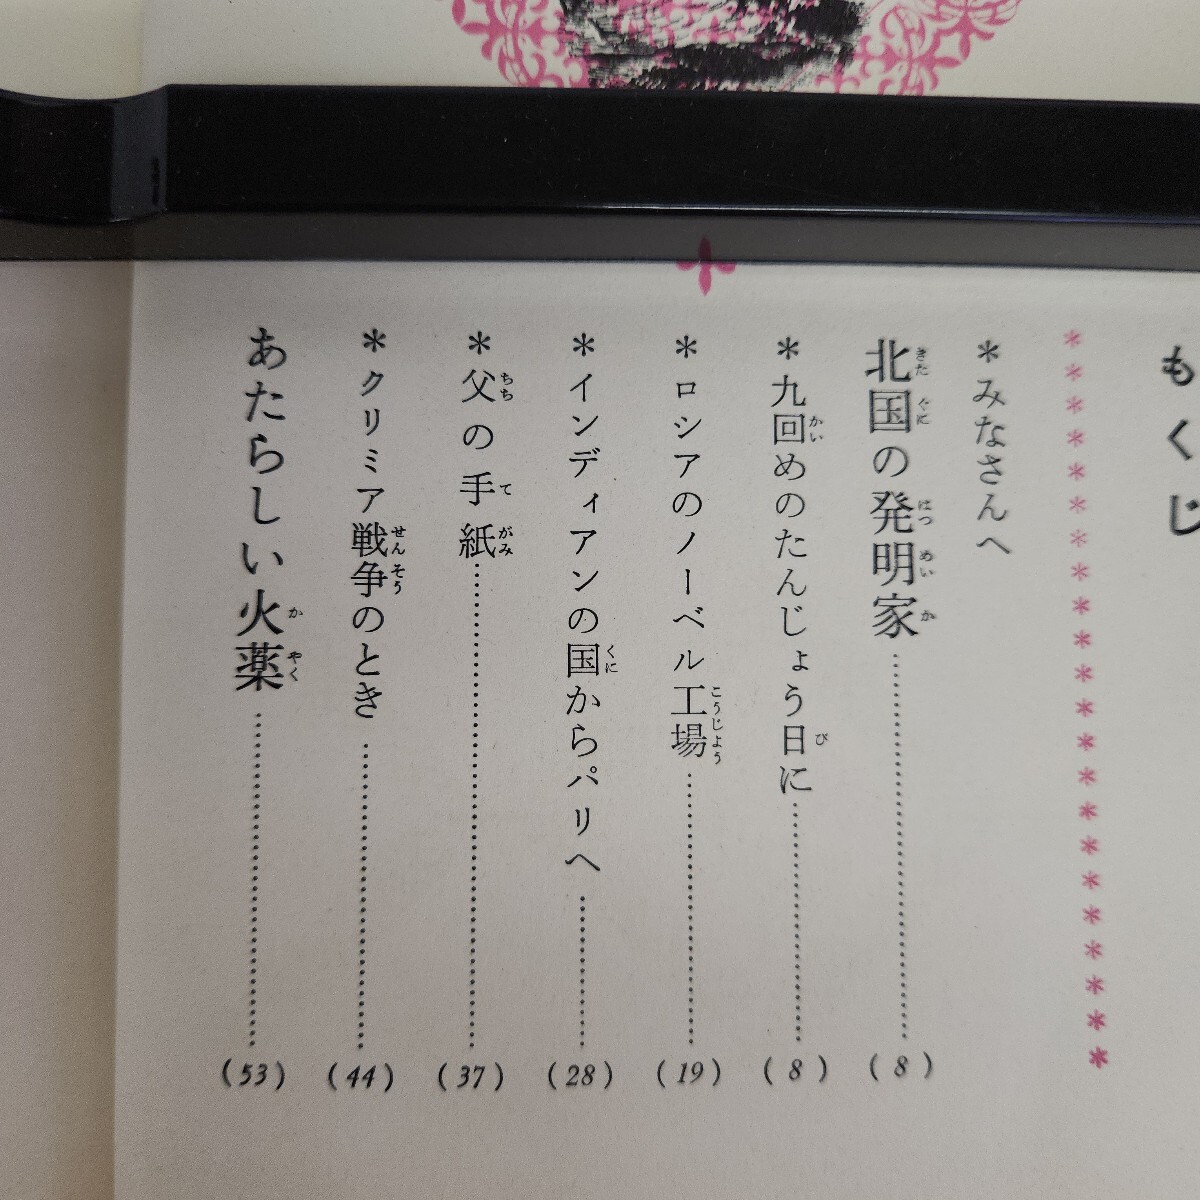 もくじ
＊みなさんへ
北国の発明家……………………(8)
＊九回めのたんじょう日に……………(8)
＊ロシアのノーベル工場………………(19)
＊インディアンの国からパリへ…………(28)
＊父の手紙……………………………(37)
＊クリミア戦争のとき…………………(44)
あたらしい火薬………………………(53)